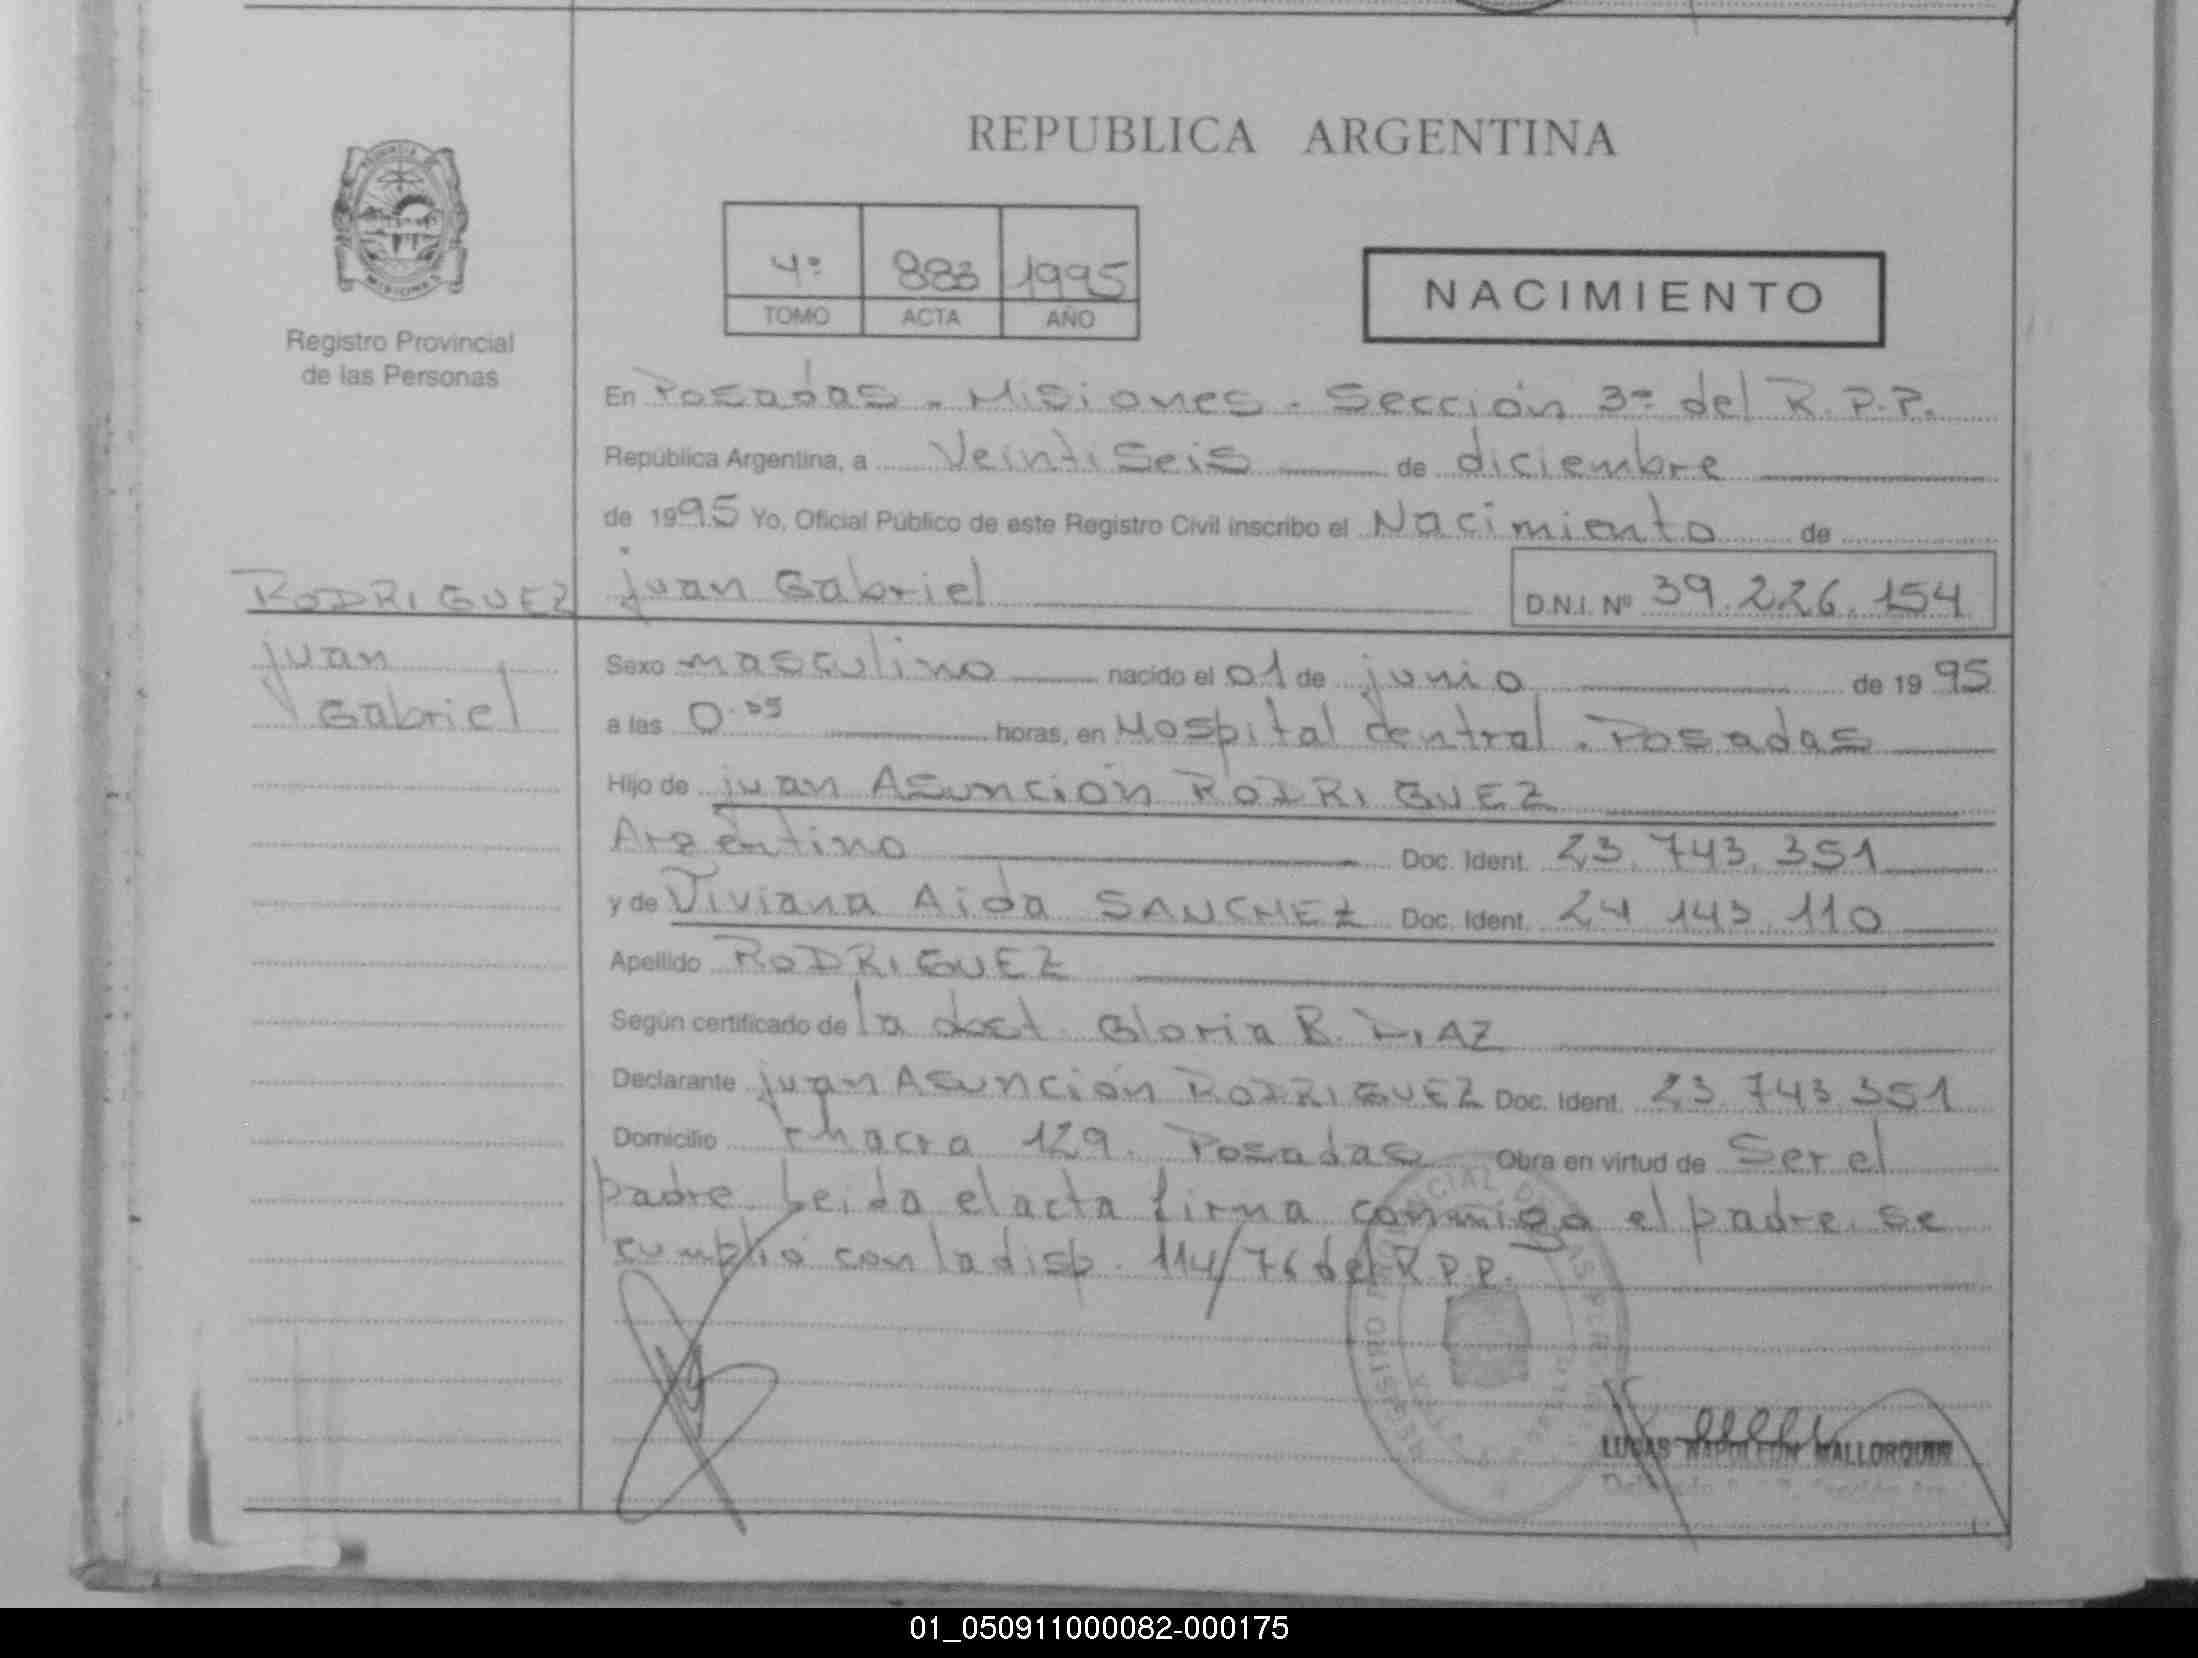 REPUBLICA ARGENTINA
4º 883 1995
TOMO ACTA AÑO
NACIMIENTO
Registro Provincial
de las Personas
En Posadas - Misiones - Sección 3ª del R.P.P.
República Argentina, a Veintiseis de diciembre
de 1995 Yo, Oficial Público de este Registro Civil inscribo el Nacimiento de
juan Gabriel D.N.I. Nº 39.226.154
RODRIGUEZ
juan
Gabriel
Sexo masculino nacido el 01 de junio de 1995
a las horas, en Hospital Central. Posadas
Hijo de juan Asunción RODRIGUEZ
Argentino Doc. Ident. 23.743.351
y de Viviana Aida SANCHEZ Doc. Ident. 24 143.110
Apellido RODRIGUEZ
Según certificado de la doct. Gloria B. DIAZ
Declarante juan Asunción RODRIGUEZ Doc. Ident. 23.743.351
Domicilio chacra 129. Posadas Obra en virtud de Ser el
padre. Leida el acta firma conmigo el padre. se
cumplió con la disp. 114/76 del R.P.P.
LUCAS NAPOLEON MALLORQUIN
01_050911000082-000175